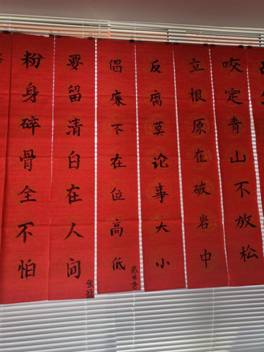 咬定青山不放松
立根原在破岩中
反腐莫论事大小
倡廉不在位高低
要留清白在人间
粉身碎骨全不怕